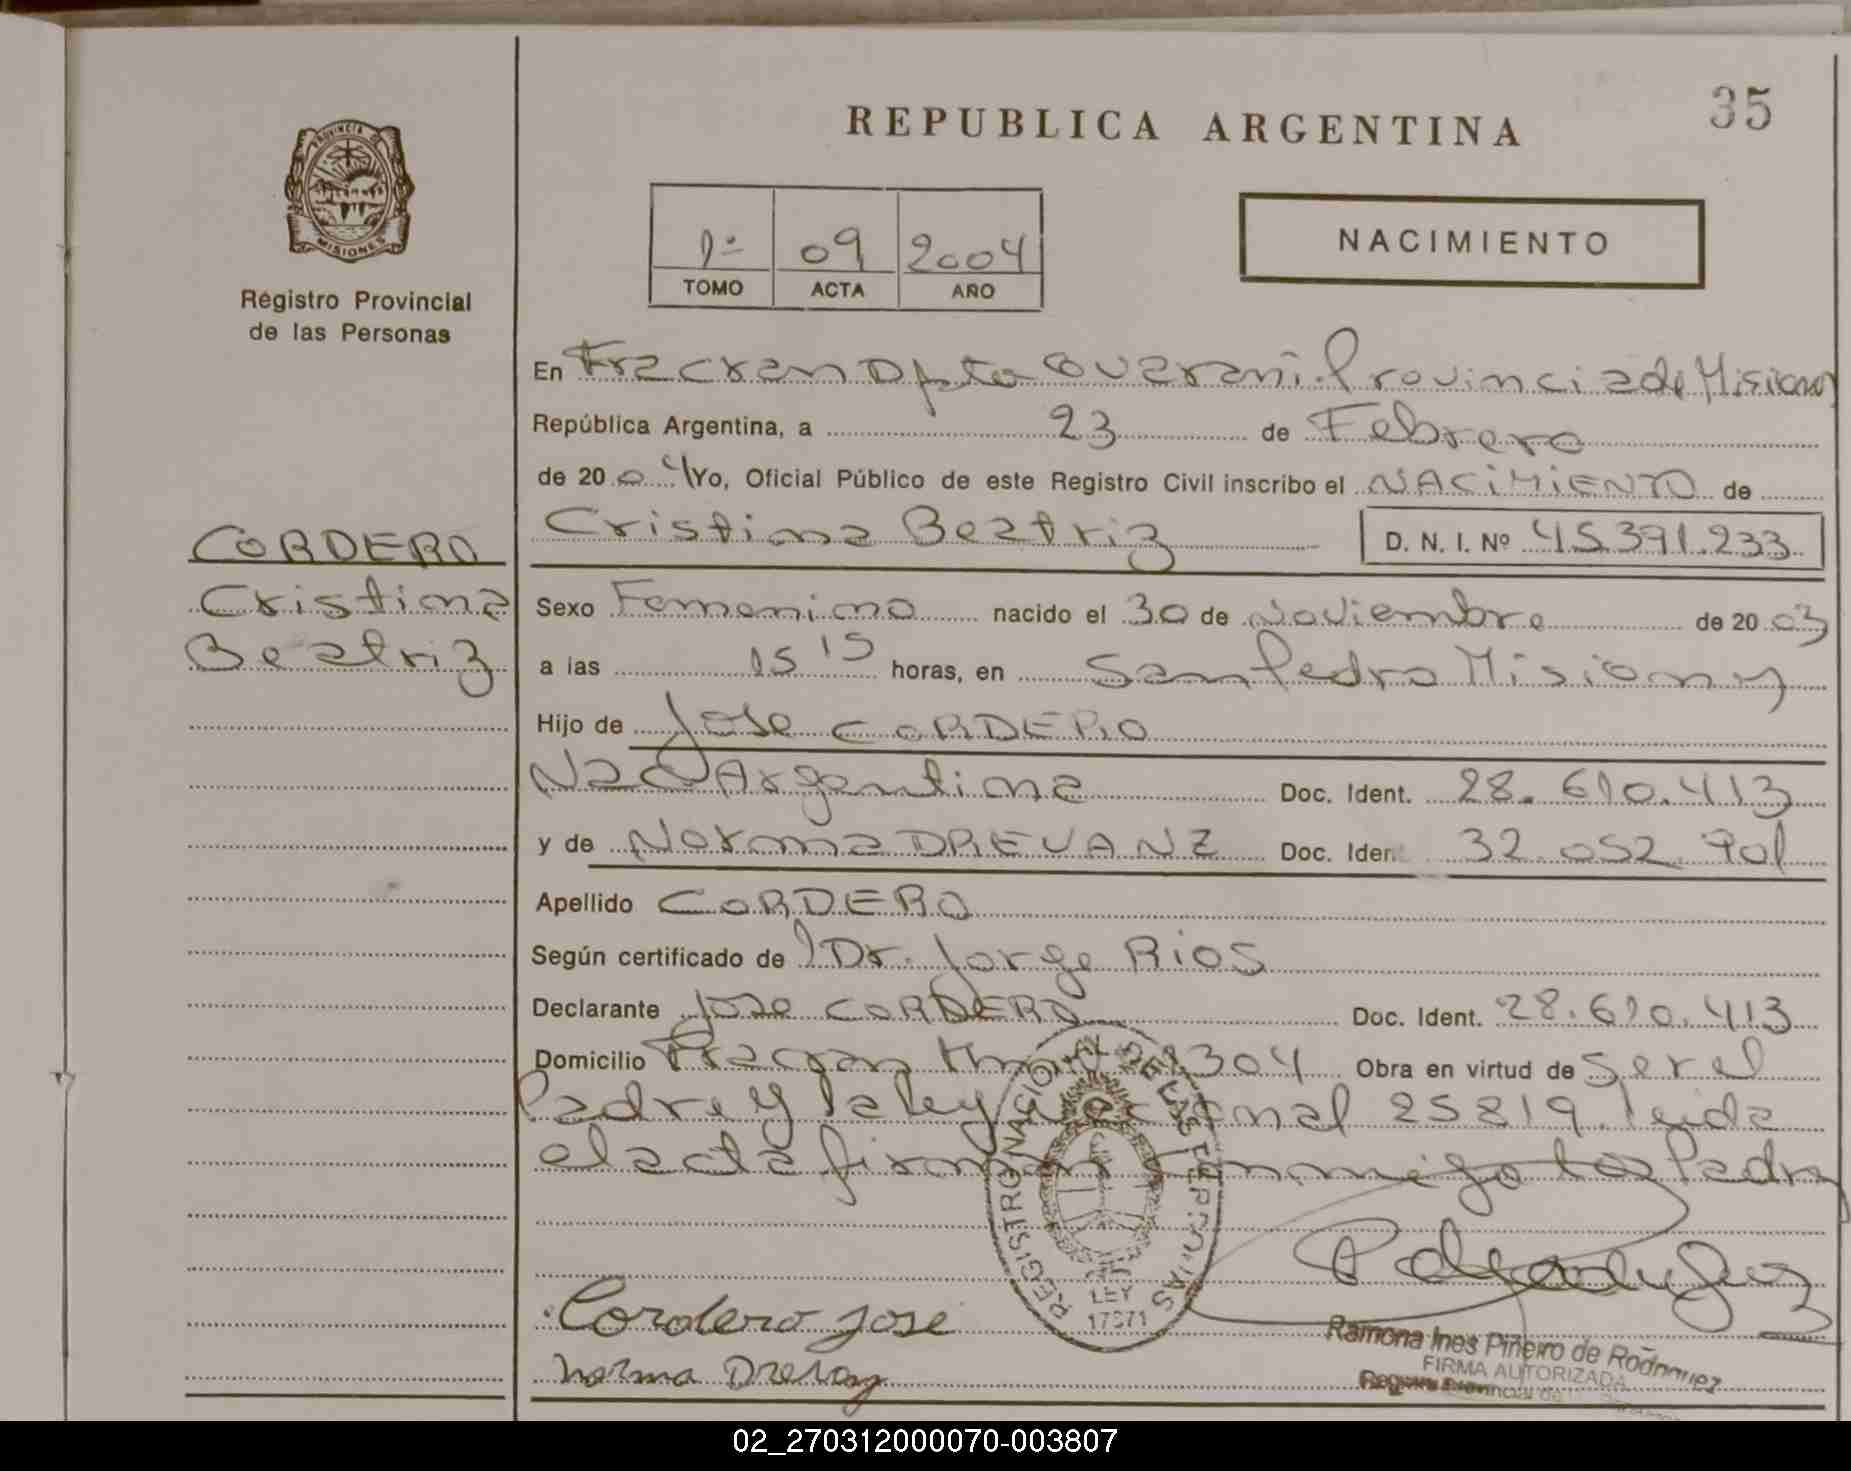 35
REPUBLICA ARGENTINA
PROVINCIA DE
MISIONES
Régistro Provincial
de las Personas
1º 09 2004
TOMO ACTA AÑO
NACIMIENTO
En Fracran Dpto Guarani. Provincia de Misiones
República Argentina, a 23 de Febrero
de 20 04 Yo, Oficial Público de este Registro Civil inscribo el NACiMiENTO de
Cristina Beatriz D. N. I. Nº 45.391.233
CORDERO
Cristina
Beatriz
Sexo Femenino nacido el 30 de Noviembre de 20 03
a las 15 15 horas, en San Pedro Misiones
Hijo de Jose CORDERO
Nac Argentina Doc. Ident. 28.610.413
y de Norma DREVANZ Doc. Iden 32.052.901
Apellido CORDERO
Según certificado de Dr. Jorge RiOS
Declarante Jose CORDERO Doc. Ident. 28.610.413
Domicilio Fracran 1304 Obra en virtud de Ser el
Padre y la ley nacional 25819. leida
el acta firman conmigo los Padres
REGISTRO NACIONAL DE LAS PERSONAS
LEY
17671
Cordero Jose
Norma
Ramona Ines Piñeiro de Rodriguez
FIRMA AUTORIZADA
Registro Provincial de
02_270312000070-003807